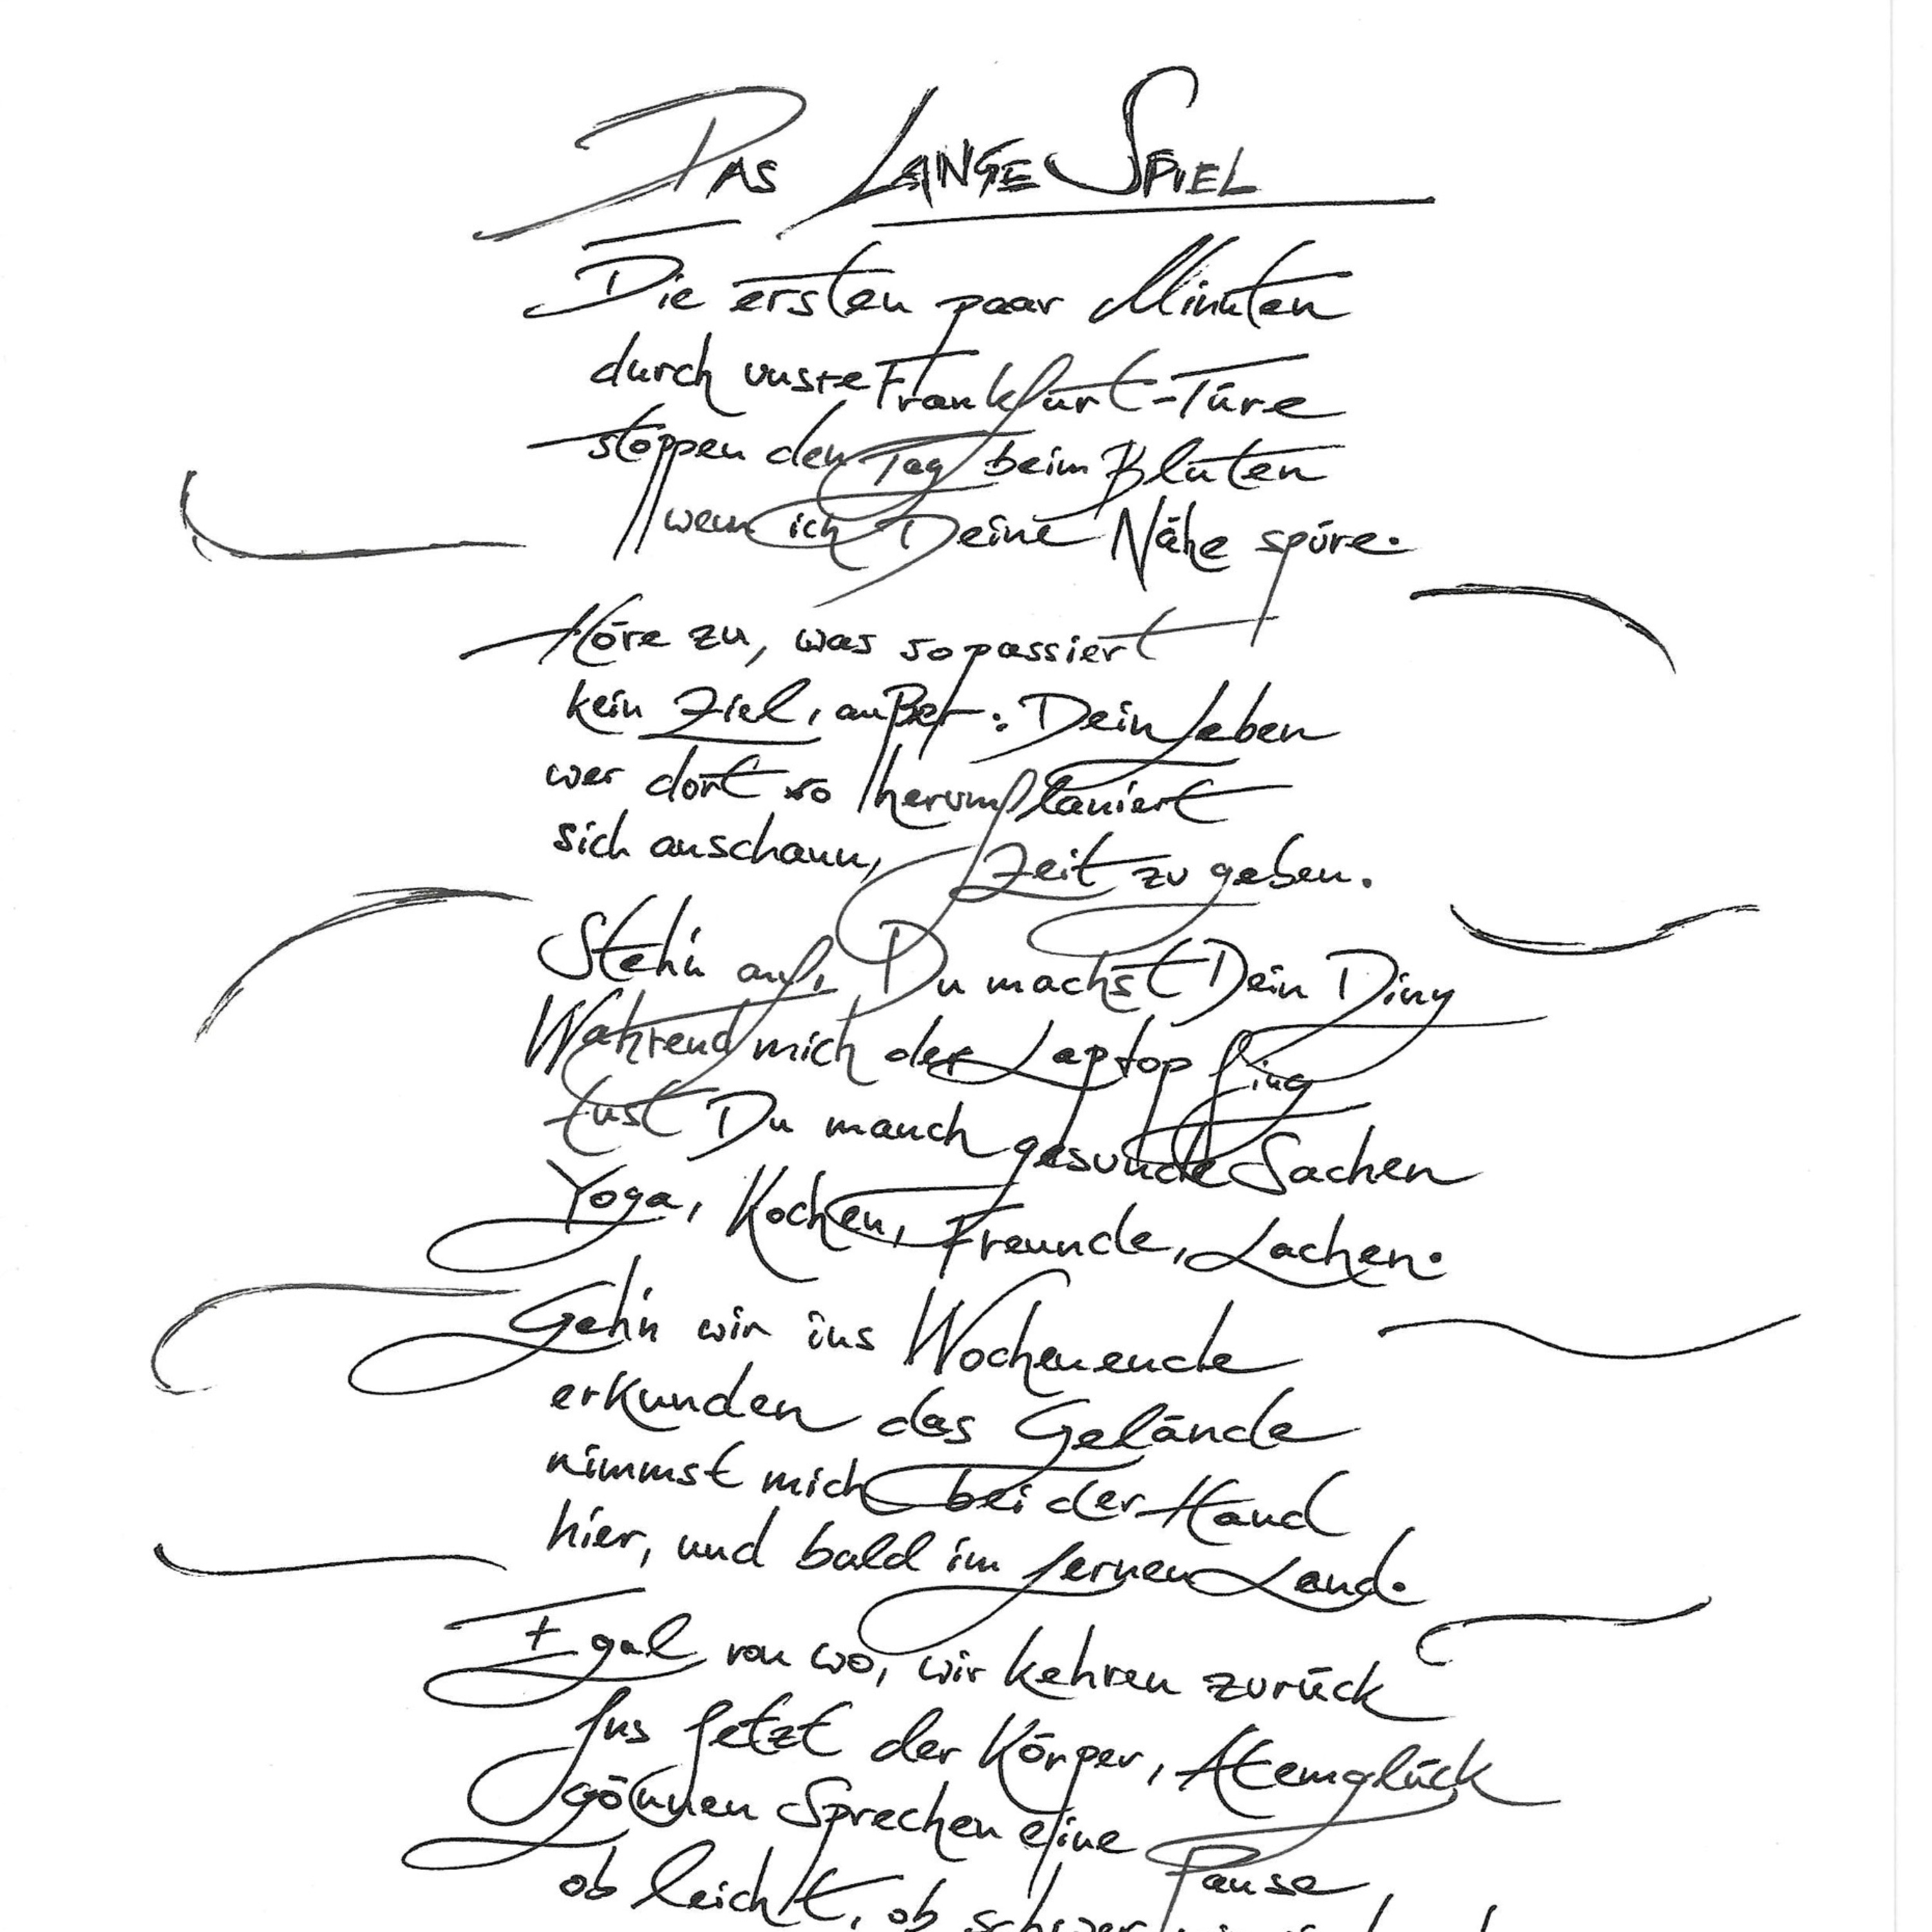 Das Lange Spiel
Die ersten paar Minuten
durch unsre Frankfurt-Türe
stoppen den Tag beim Bluten
wenn ich Deine Nähe spüre.
Höre zu, was so passiert
kein Ziel, außer: Dein Leben
wer dort so herumflaniert
sich anschaun, Zeit zu geben.
Steh'n auf, Du machst Dein Ding
Während mich der Laptop fing
tust Du manch gesunde Sachen
Yoga, Kochen, Freunde, Lachen.
Geh'n wir ins Wochenende
erkunden das Gelände
nimmst mich bei der Hand
hier, und bald im fernen Land.
Egal von wo, wir kehren zurück
Ins Jetzt der Körper, Atemglück
gönnen Sprechen eine Pause
ob leicht, ob schwer